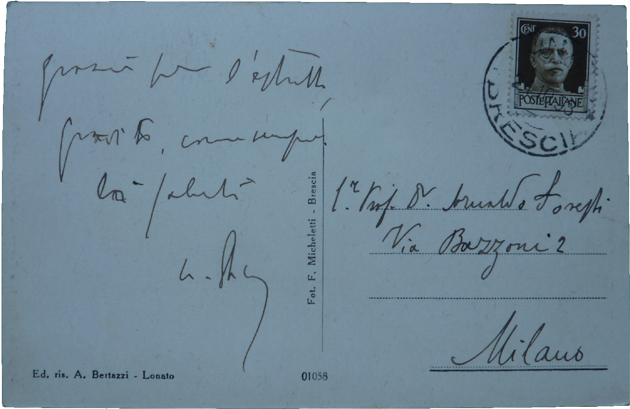 grazie per l'estratto
gradito, come sempre.
Cari saluti
Ed. ris. A. Bertazzi - Lonato
Fot. F. Micheletti - Brescia
01058
CENT 30
POSTE ITALIANE
BRESCIA
Prof. Dr. Arnaldo Foresti
Via Bazzoni 2
Milano